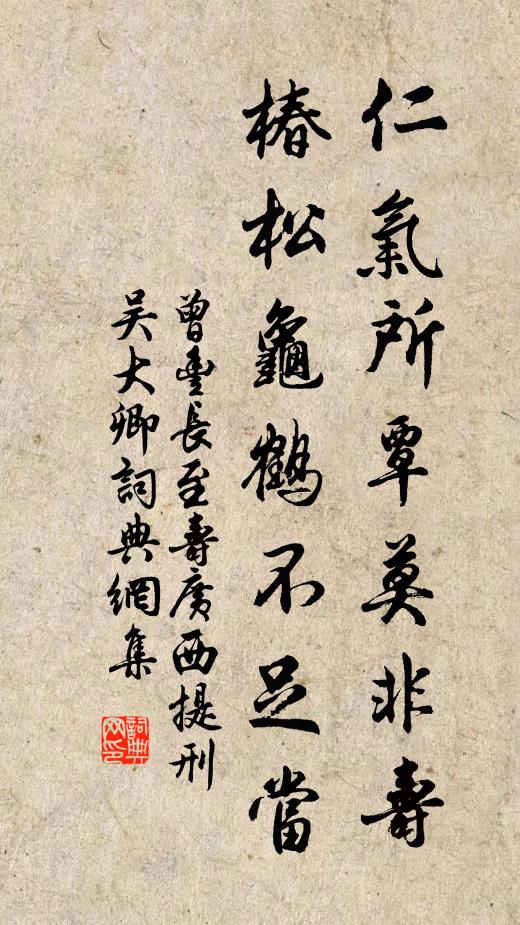 仁氣所覃莫非壽
椿松龜鶴不足當
曾豐長至壽廣西提刑
吴大卿詞典網集
詞典
网印